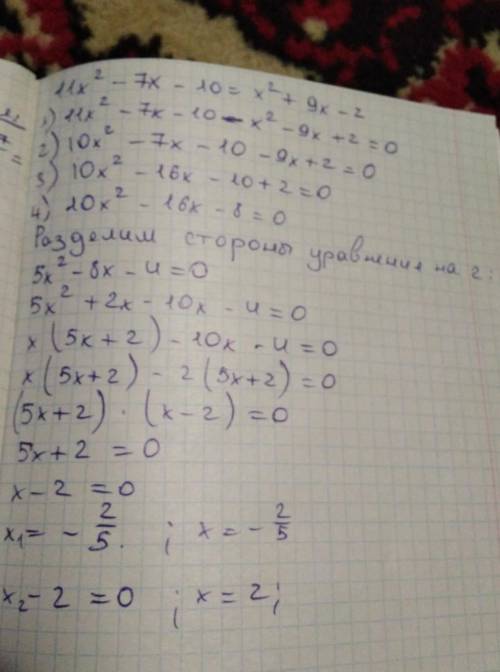 11x² - 7x - 10 = x² + 9x - 2
1) 11x² - 7x - 10 - x² - 9x + 2 = 0
2) 10x² - 7x - 10 - 9x + 2 = 0
3) 10x² - 16x - 10 + 2 = 0
4) 10x² - 16x - 8 = 0
Разделим стороны уравнения на 2:
5x² - 8x - 4 = 0
5x² + 2x - 10x - 4 = 0
x(5x + 2) - 10x - 4 = 0
x(5x + 2) - 2(5x + 2) = 0
(5x + 2) · (x - 2) = 0
5x + 2 = 0
x - 2 = 0
x₁ = - 2/5. ; x = - 2/5
x₂ - 2 = 0 ; x = 2;